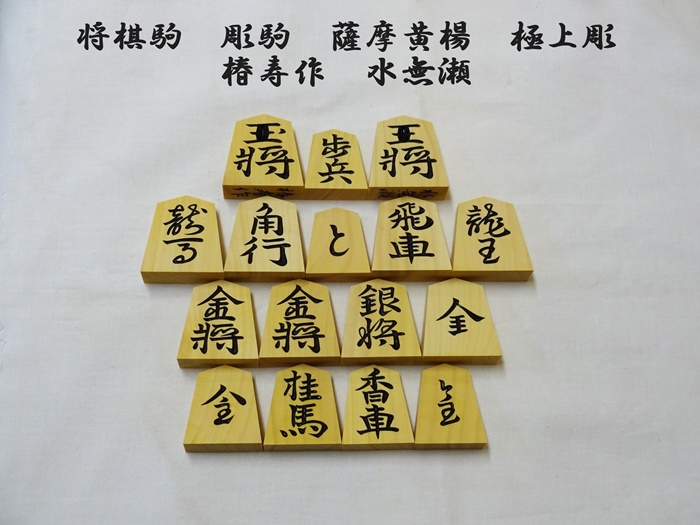 将棋駒 彫駒 薩摩黄楊 極上彫
椿寿作 水無瀬
玉将 歩兵 王将
龍馬 角行 と 飛車 龍王
金将 金将 銀将 全
全 桂馬 香車